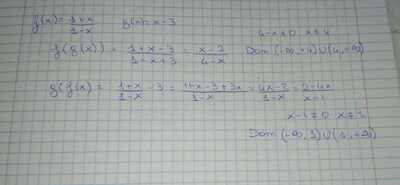 f(x) = (1+x)/(1-x)    g(x) = x-3
4-x≠0  x≠4
f(g(x)) = (1+x-3)/(1-x+3) = (x-2)/(4-x)    Dom (-∞,+4)∪(4,+∞)
g(f(x)) = (1+x)/(1-x) - 3 = (1+x-3+3x)/(1-x) = (4x-2)/(1-x) = (2-4x)/(x-1)
x-1≠0  x≠1
Dom (-∞,1)∪(1,+∞)